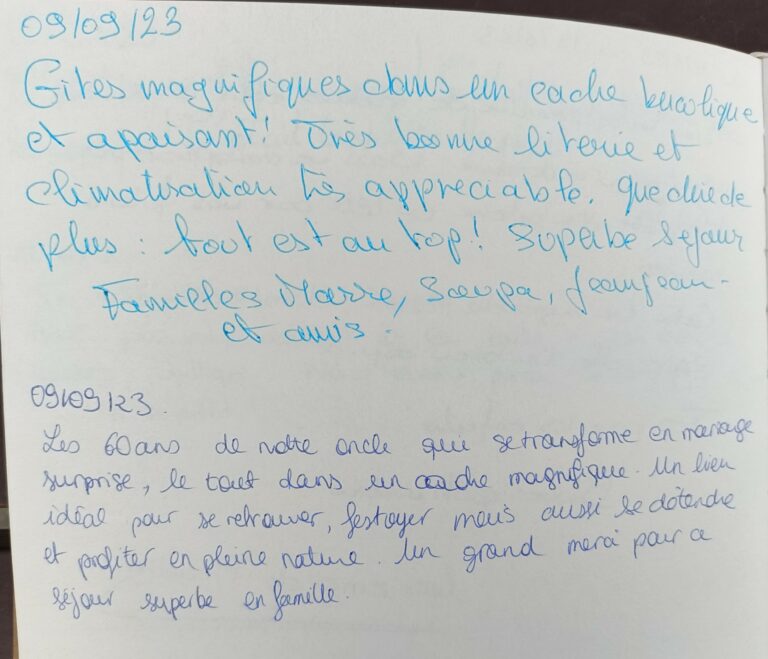 09/09/23
Gites magnifiques dans un cadre bucolique
et apaisant! Très bonne literie et
climatisation très appreciable. Que dire de
plus : tout est au top! Superbe séjour
Familles Marre, Jeanjean -
et amis.
09/09/23.
Les 60 ans de notre oncle qui se transforme en mariage
surprise, le tout dans un cadre magnifique. Un lieu
idéal pour se retrouver, festoyer mais aussi se détendre
et profiter en pleine nature. Un grand merci pour ce
séjour superbe en famille.